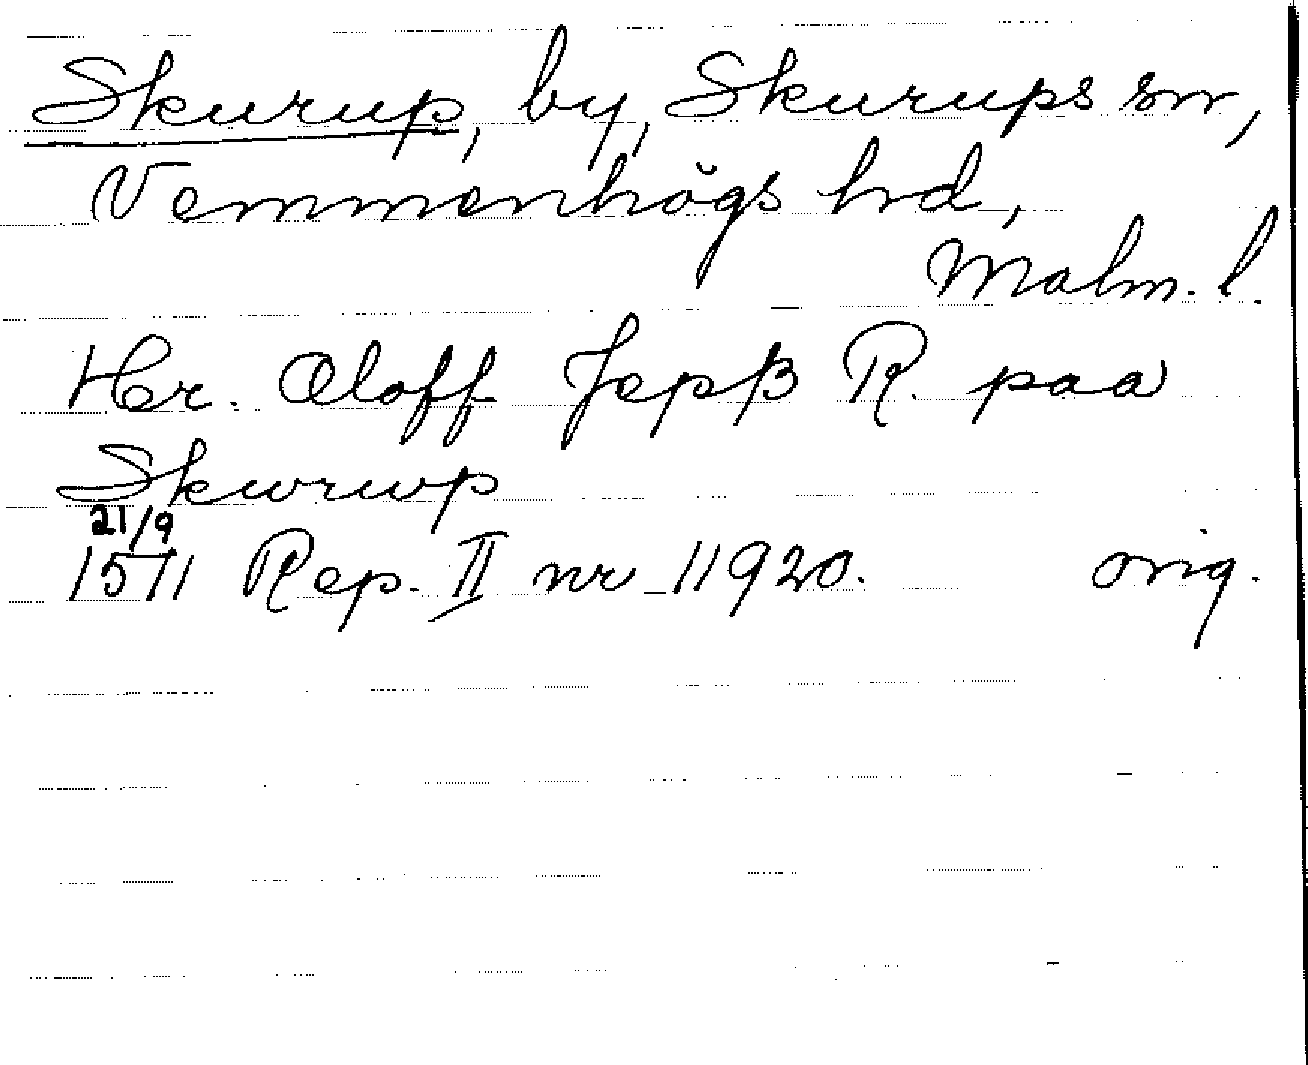 Skurup, by, Skurups sn,
Vemmenhögs hd,
Malm. l.
Her. Oloff Jepß R. paa
Skwrwp
21/9
1511 Rep. II nr 11920. orig.